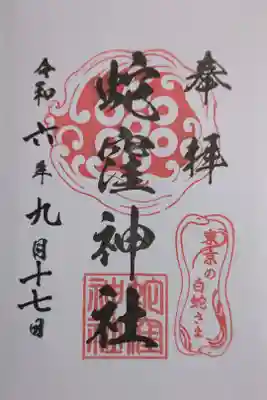 奉拝
東京の
白蛇さま
蛇窪神社
蛇窪
神社
令和六年九月十七日